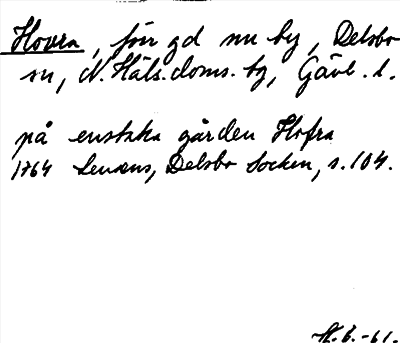 Hovra, förr gd nu by, Delsbo
sn, N. Häls. doms. by, Gävl. l.
på enstaka gården Hofra
1764 Lenæus, Delsbo Socken, s. 104.
-61.